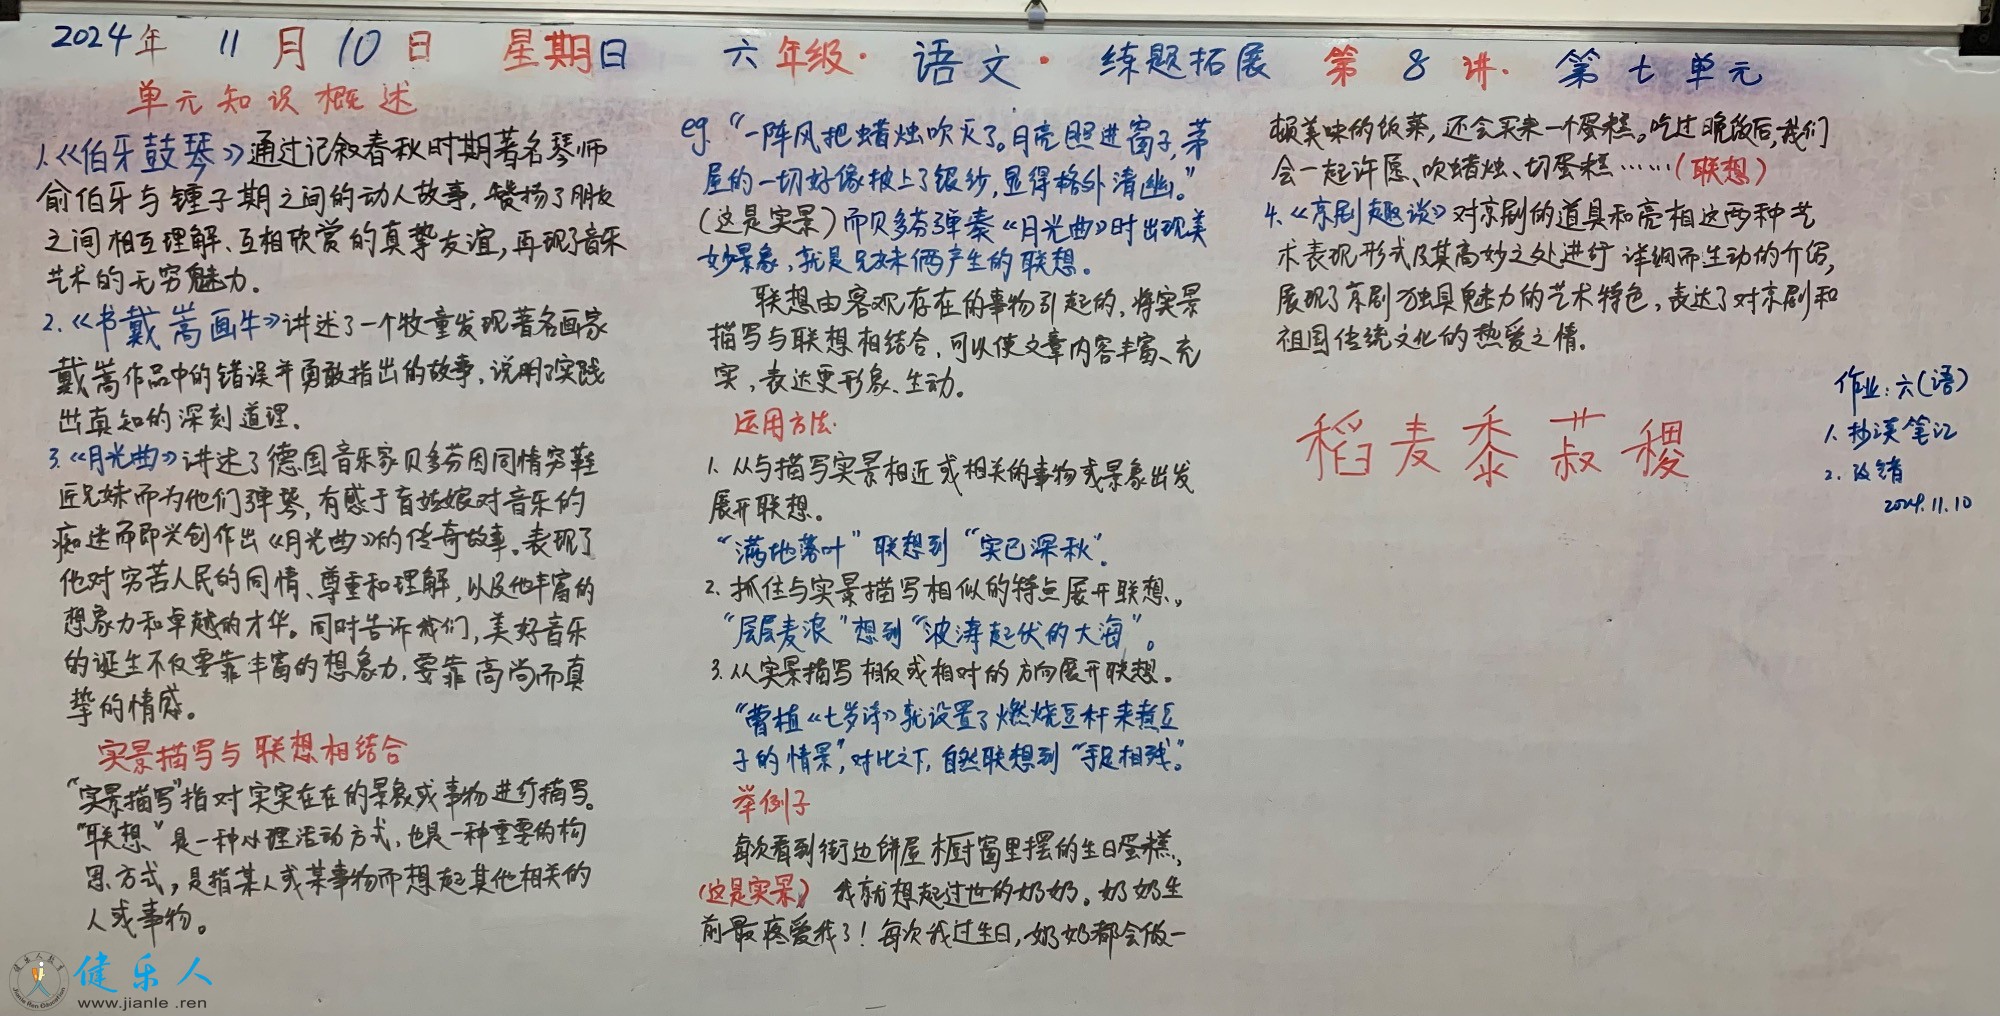 2024年 11月10日 星期日 六年级·语文·练题拓展 第8讲·第七单元
单元知识概述
1.《伯牙鼓琴》通过记叙春秋时期著名琴师
俞伯牙与锺子期之间的动人故事,赞扬了朋友
之间相互理解、互相欣赏的真挚友谊,再现了音乐
艺术的无穷魅力。
2.《书戴嵩画牛》讲述了一个牧童发现著名画家
戴嵩作品中的错误并勇敢指出的故事,说明了实践
出真知的深刻道理。
3.《月光曲》讲述了德国音乐家贝多芬因同情穷鞋
匠兄妹而为他们弹琴,有感于盲姑娘对音乐的
痴迷而即兴创作出《月光曲》的传奇故事。表现了
他对穷苦人民的同情、尊重和理解,以及他丰富的
想象力和卓越的才华。同时告诉我们,美好音乐
的诞生不仅要靠丰富的想象力,要靠高尚而真
挚的情感。
实景描写与联想相结合
“实景描写”指对实实在在的景象或事物进行描写。
“联想”是一种心理活动方式,也是一种重要的构
思方式,是指某人或某事物而想起其他相关的
人或事物。
eg.“一阵风把蜡烛吹灭了。月亮照进窗子,茅
屋的一切好像披上了银纱,显得格外清幽。”
(这是实景)而贝多芬弹奏《月光曲》时出现美
妙景象,就是兄妹俩产生的联想。
联想由客观存在的事物引起的,将实景
描写与联想相结合,可以使文章内容丰富、充
实,表达更形象、生动。
运用方法:
1.从与描写实景相近或相关的事物或景象出发
展开联想。
“满地落叶”联想到“实已深秋”.
2.抓住与实景描写相似的特点展开联想。
“层层麦浪”想到“波涛起伏的大海”。
3.从实景描写相反或相对的方向展开联想。
“曹植《七岁诗》就设置了燃烧豆杆来煮豆
子的情景”,对比之下,自然联想到“手足相残”。
举例子
每次看到街边饼屋橱窗里摆的生日蛋糕,
(这是实景)我就想起过世的奶奶。奶奶生
前最疼爱我了!每次我过生日,奶奶都会做一
顿美味的饭菜,还会买来一个蛋糕。吃过晚饭后,我们
会一起许愿、吹蜡烛、切蛋糕……(联想)
4.《京剧趣谈》对京剧的道具和亮相这两种艺
术表现形式及其高妙之处进行详细而生动的介绍,
展现了京剧独具魅力的艺术特色,表达了对京剧和
祖国传统文化的热爱之情。
稻麦黍菽稷
作业:六(语)
1.抄读笔记
2.改错
2024.11.10
健乐人
www.jianle.ren